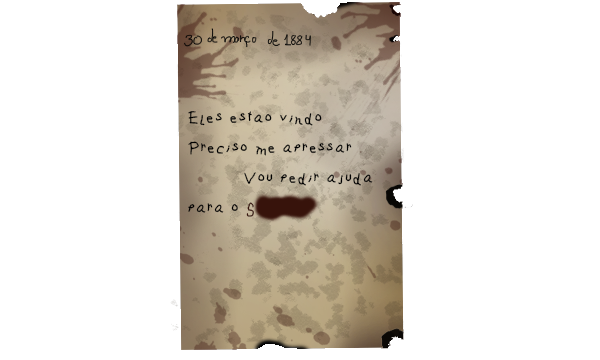 30 de março de 1884
Eles estao vindo
Preciso me apressar
Vou pedir ajuda
para o S